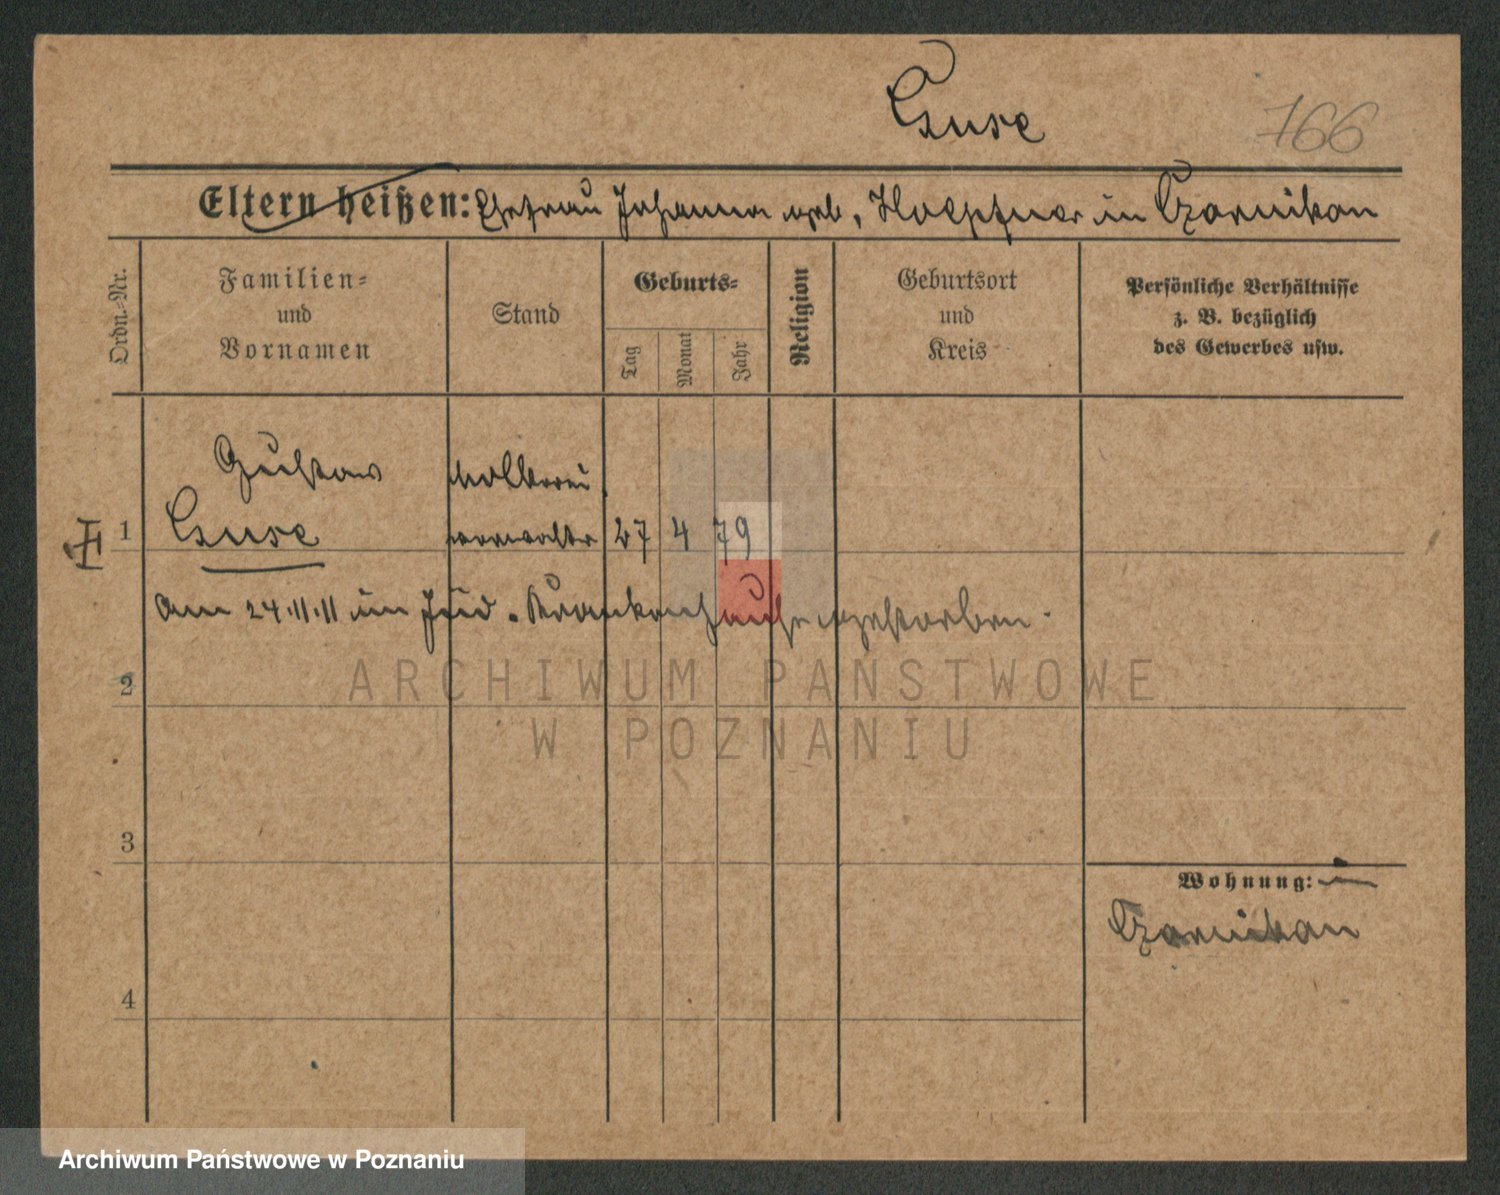 Guse
766
Eltern heißen: Ehefrau Johanna geb. Hoepfner in Czarnikau
Ordn.-Nr.
Familien-
und
Vornamen
Stand
Geburts-
Tag
Monat
Jahr
Religion
Geburtsort
und
Kreis
Persönliche Verhältnisse
z. B. bezüglich
des Gewerbes usw.
Gustav Molkerei
1 Guse verwalter 27 4 79
am 24.11.11 im Jüd. Krankenhause gestorben.
2
ARCHIWUM PANSTWOWE
W POZNANIU
3
Wohnung: in
Czarnikau
4
Archiwum Państwowe w Poznaniu